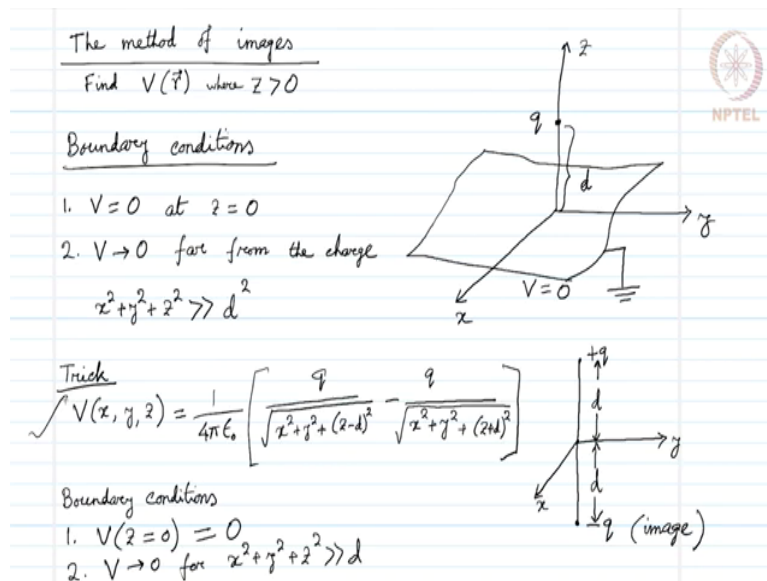 The method of images
Find V(r⃗) where z>0
Boundary conditions
1. V=0 at z=0
2. V→0 far from the charge
x²+y²+z² >> d²
z
q
d
y
x
V=0
NPTEL
Trick
V(x, y, z) = 1/4πε₀ [ q/√(x²+y²+(z-d)²) - q/√(x²+y²+(z+d)²) ]
+q
d
y
d
x
-q (image)
Boundary conditions
1. V(z=0) = 0
2. V→0 for x²+y²+z² >> d